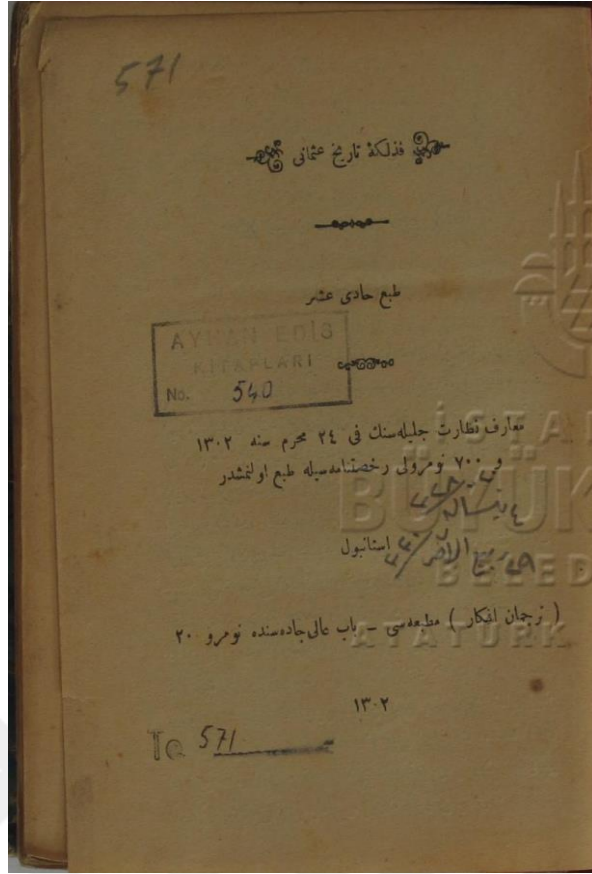 571
فذلكهٔ تاريخ عثمانى
طبع حادى عشر
AYHAN EDİS
KİTAPLARI
No. 540
معارف نظارت جليله‌سنك فى ٢٤ محرم سنه ١٣٠٢
و ٧٠٠ نومرولى رخصتنامه‌سيله طبع اولنمشدر
ربيع الآخر
استانبول
( ترجمان افكار ) مطبعه‌سى – باب عالى جاده‌سنده نومرو ٢٠
١٣٠٢
TQ 571
İSTA
BÜYÜK
BELED
ATATÜRK